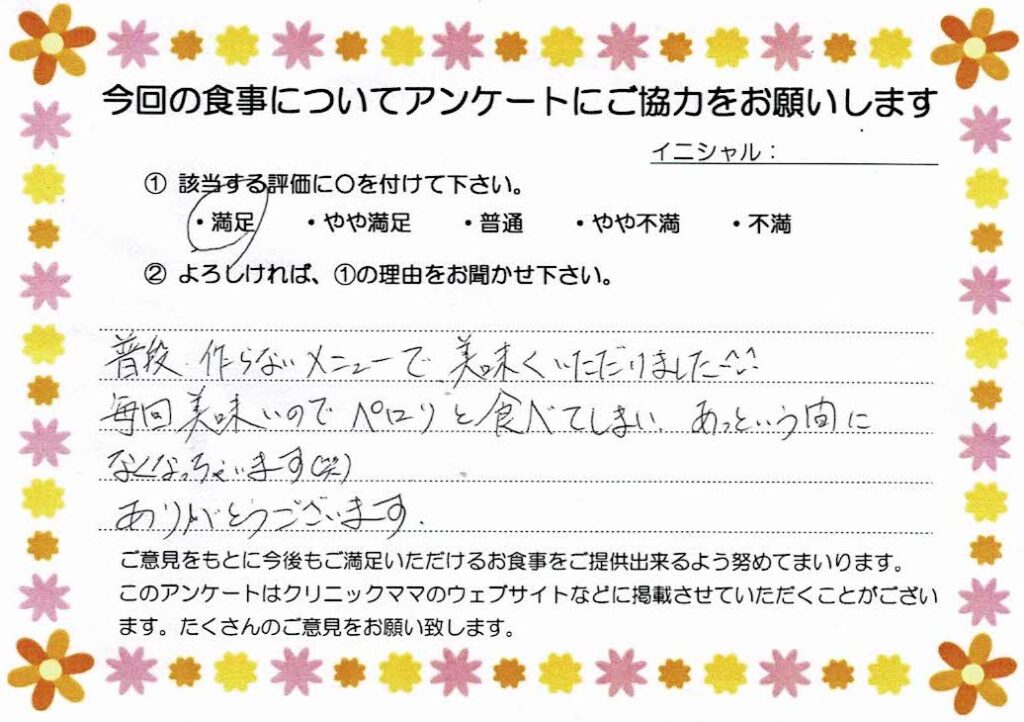 今回の食事についてアンケートにご協力をお願いします
イニシャル：
① 該当する評価に〇を付けて下さい。
・満足 ・やや満足 ・普通 ・やや不満 ・不満
② よろしければ、①の理由をお聞かせ下さい。
普段作らないメニューで美味くいただけました^^
毎回美味いのでペロリと食べてしまい、あっという間に
なくなっちゃいます(笑)
ありがとうございます.
ご意見をもとに今後もご満足いただけるお食事をご提供出来るよう努めてまいります。
このアンケートはクリニックママのウェブサイトなどに掲載させていただくことがござい
ます。たくさんのご意見をお願い致します。